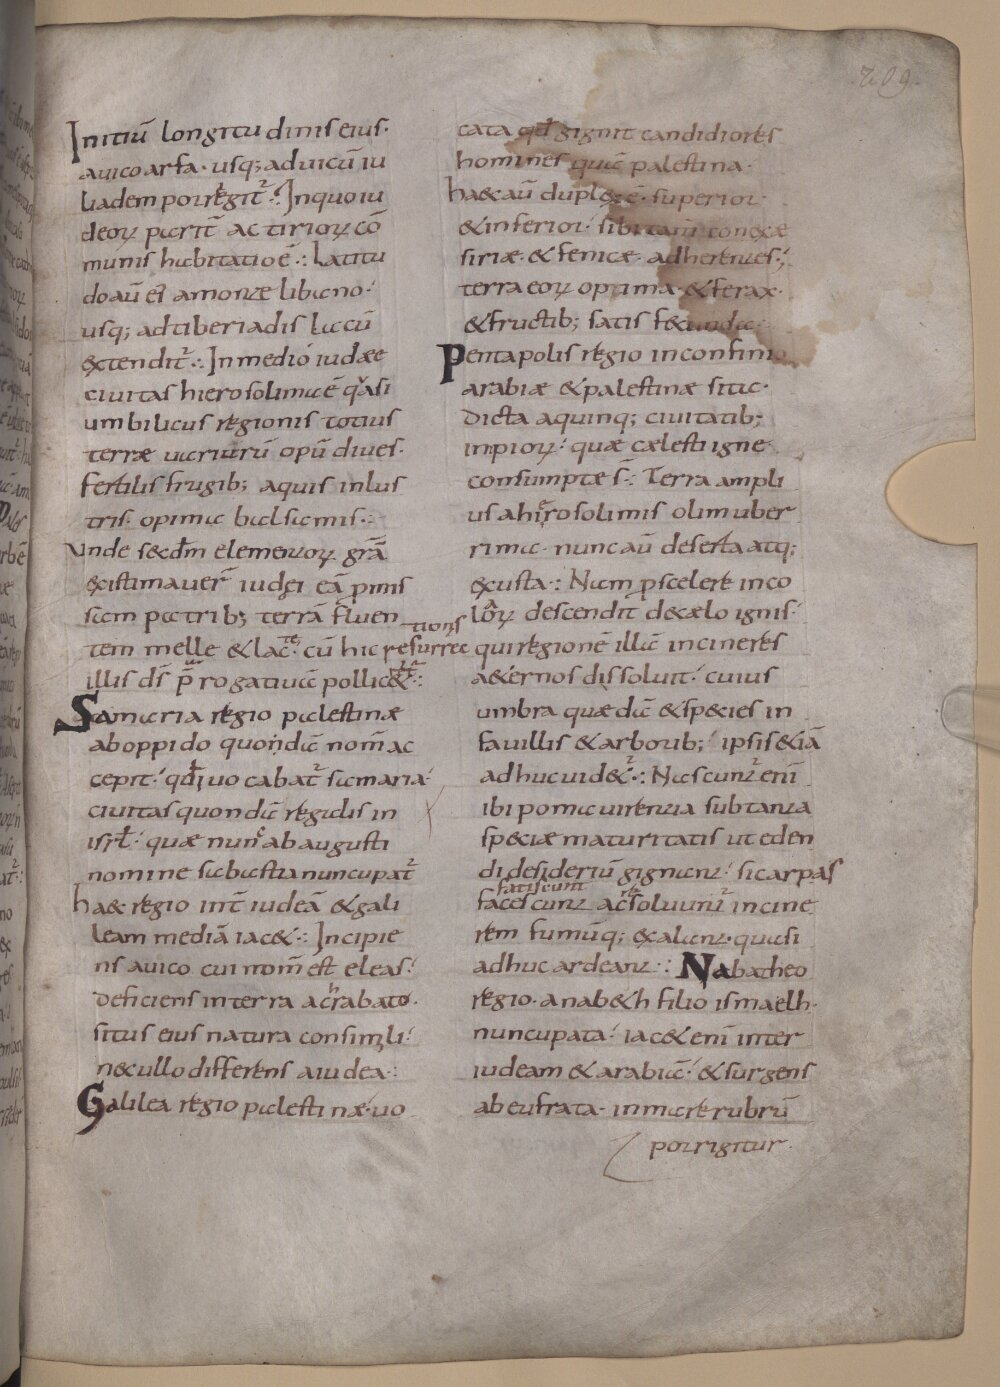 209.
Initiū longitudinis eius·
a uico arfa· usq; ad uicū iu
liadem porregit᷑·:· In quo iu
deoꝝ parit̄ ac tirioꝝ cō
munis habitatio ē·:· Latitu
do aū eˀ a monte libano·
usq; ad tiberiadis lacū
extendit᷑·:· In medio iudaee
ciuitas hierosolima ē qͣasi
umbilicus regionis totius
terrae uariarū opū diues·
fertilis frugib; aquis inlus
tris· opima balsamis·:·
Vnde secdm elementoꝝ grā
existimauer̄ iudei eā p̱mis
sam patrib; terrā fluen
tem melle & lacte· cū hic resurrectionis
illis ds̄ p̄rogatiua pollic&᷑·:·
Samaria regio palestinae
ab oppido quondā nom̄ ac
cepit· qđ uocabat᷑ samaria·
ciuitas quondā regalis in
isrł· quae nunc ab augusti
nomine sabastia nuncupat᷑
haec regio int̄ iudeā & gali
leam mediā iac&·:· Incipie
ns a uico cui nom̄ est eleas·
deficiens in terra acrabato·
situs eius natura consimili·
nec ullo differens a iudea·:·
Galilea regio palestinae· uo
cata qđ gignit candidiores
homines quā palestina·
haec aū duplex ē· superior
& inferior· sibi tam̄ conexae
siriae· & fenicae· adherentes·;
terra eoꝝ optima· & ferax·
& fructib; satis fecunda·
Pentapolis regio in confinio
arabiae & palestinae sita·
dicta a quinq; ciuitatib;
inpioꝝ· quae caelesti igne
consumptae s̄·:· Terra ampli
us a hierosolimis olim uber
rima· nunc aū deserta atq;
exusta·:· Nam p̱ scelere inco
loꝝ descendit de caelo ignis·
qui regionē illā in cineres
aeternos dissoluit· cuius
umbra quaedā & species in
fauillis & arborib;· ipsis &iā
adhuc uidet᷑·:· Nascunt᷑ enī
ibi poma uirentia sub tanta
speciae maturitatis ut eden
di desiderium gignant· si carpas
fatiscunt
facescunt ac resoluunt᷑ in cine
rem fumūq; exalant· quasi
adhuc ardeant·:· Nabatheo
regio· a nabeth filio ismaelh·
nuncupata· iac& enī inter
iudeam & arabiā· & surgens
ab eufrata· in mare rubrū
porrigitur·